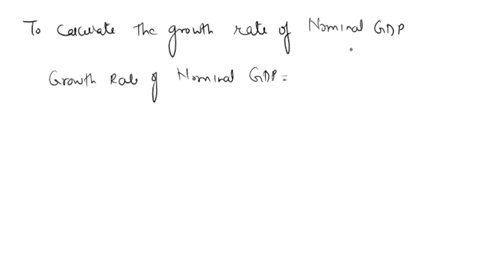 To Calculate the growth rate of Nominal GDP
Growth Rate of Nominal GDP =